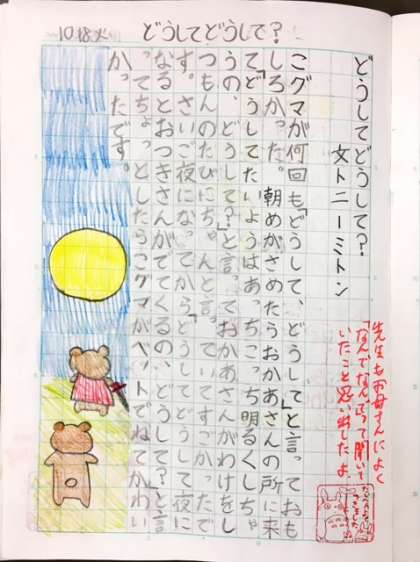 10.18 火
どうしてどうして?
どうしてどうして?
文 トニーミトン
こグマが何回も「どうして、どうして」と言っておも
しろかった。朝めがさめたらおかあさんの所に来
て「どうしてたいようはあっちこっち明るくしちゃ
うの、どうして?」と言っておかあさんがわけをし
つもんのたびにちゃんと言っていてすごかったで
す。さいご夜になってから「どうしてどうして夜に
なるとおつきさんがでてくるの、どうして?」と言
ってちょっとしたらこグマがベットでねてかわい
かったです。
先生もお母さんによく
「なんでなんで」って聞いて
いたこと思い出したよ。